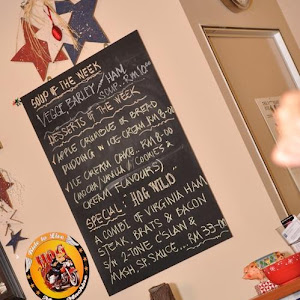 SOUP OF THE WEEK
VEGGIE BARLEY / HAM
SOUP RM10.00
DESSERTS OF THE WEEK
APPLE CRUMBLE OR BREAD
PUDDING W ICE CREAM RM18.00
ICE CREAM CAKE RM18.00
(MOCHA/VANILLA/COOKIES &
CREAM FLAVOURS)
SPECIAL: HOG WILD
A COMBI OF VIRGINIA HAM
STEAK, BRATS & BACON
S/W 2-TONE C'SLAW &
MASH, SP. SAUCE... RM 33.00